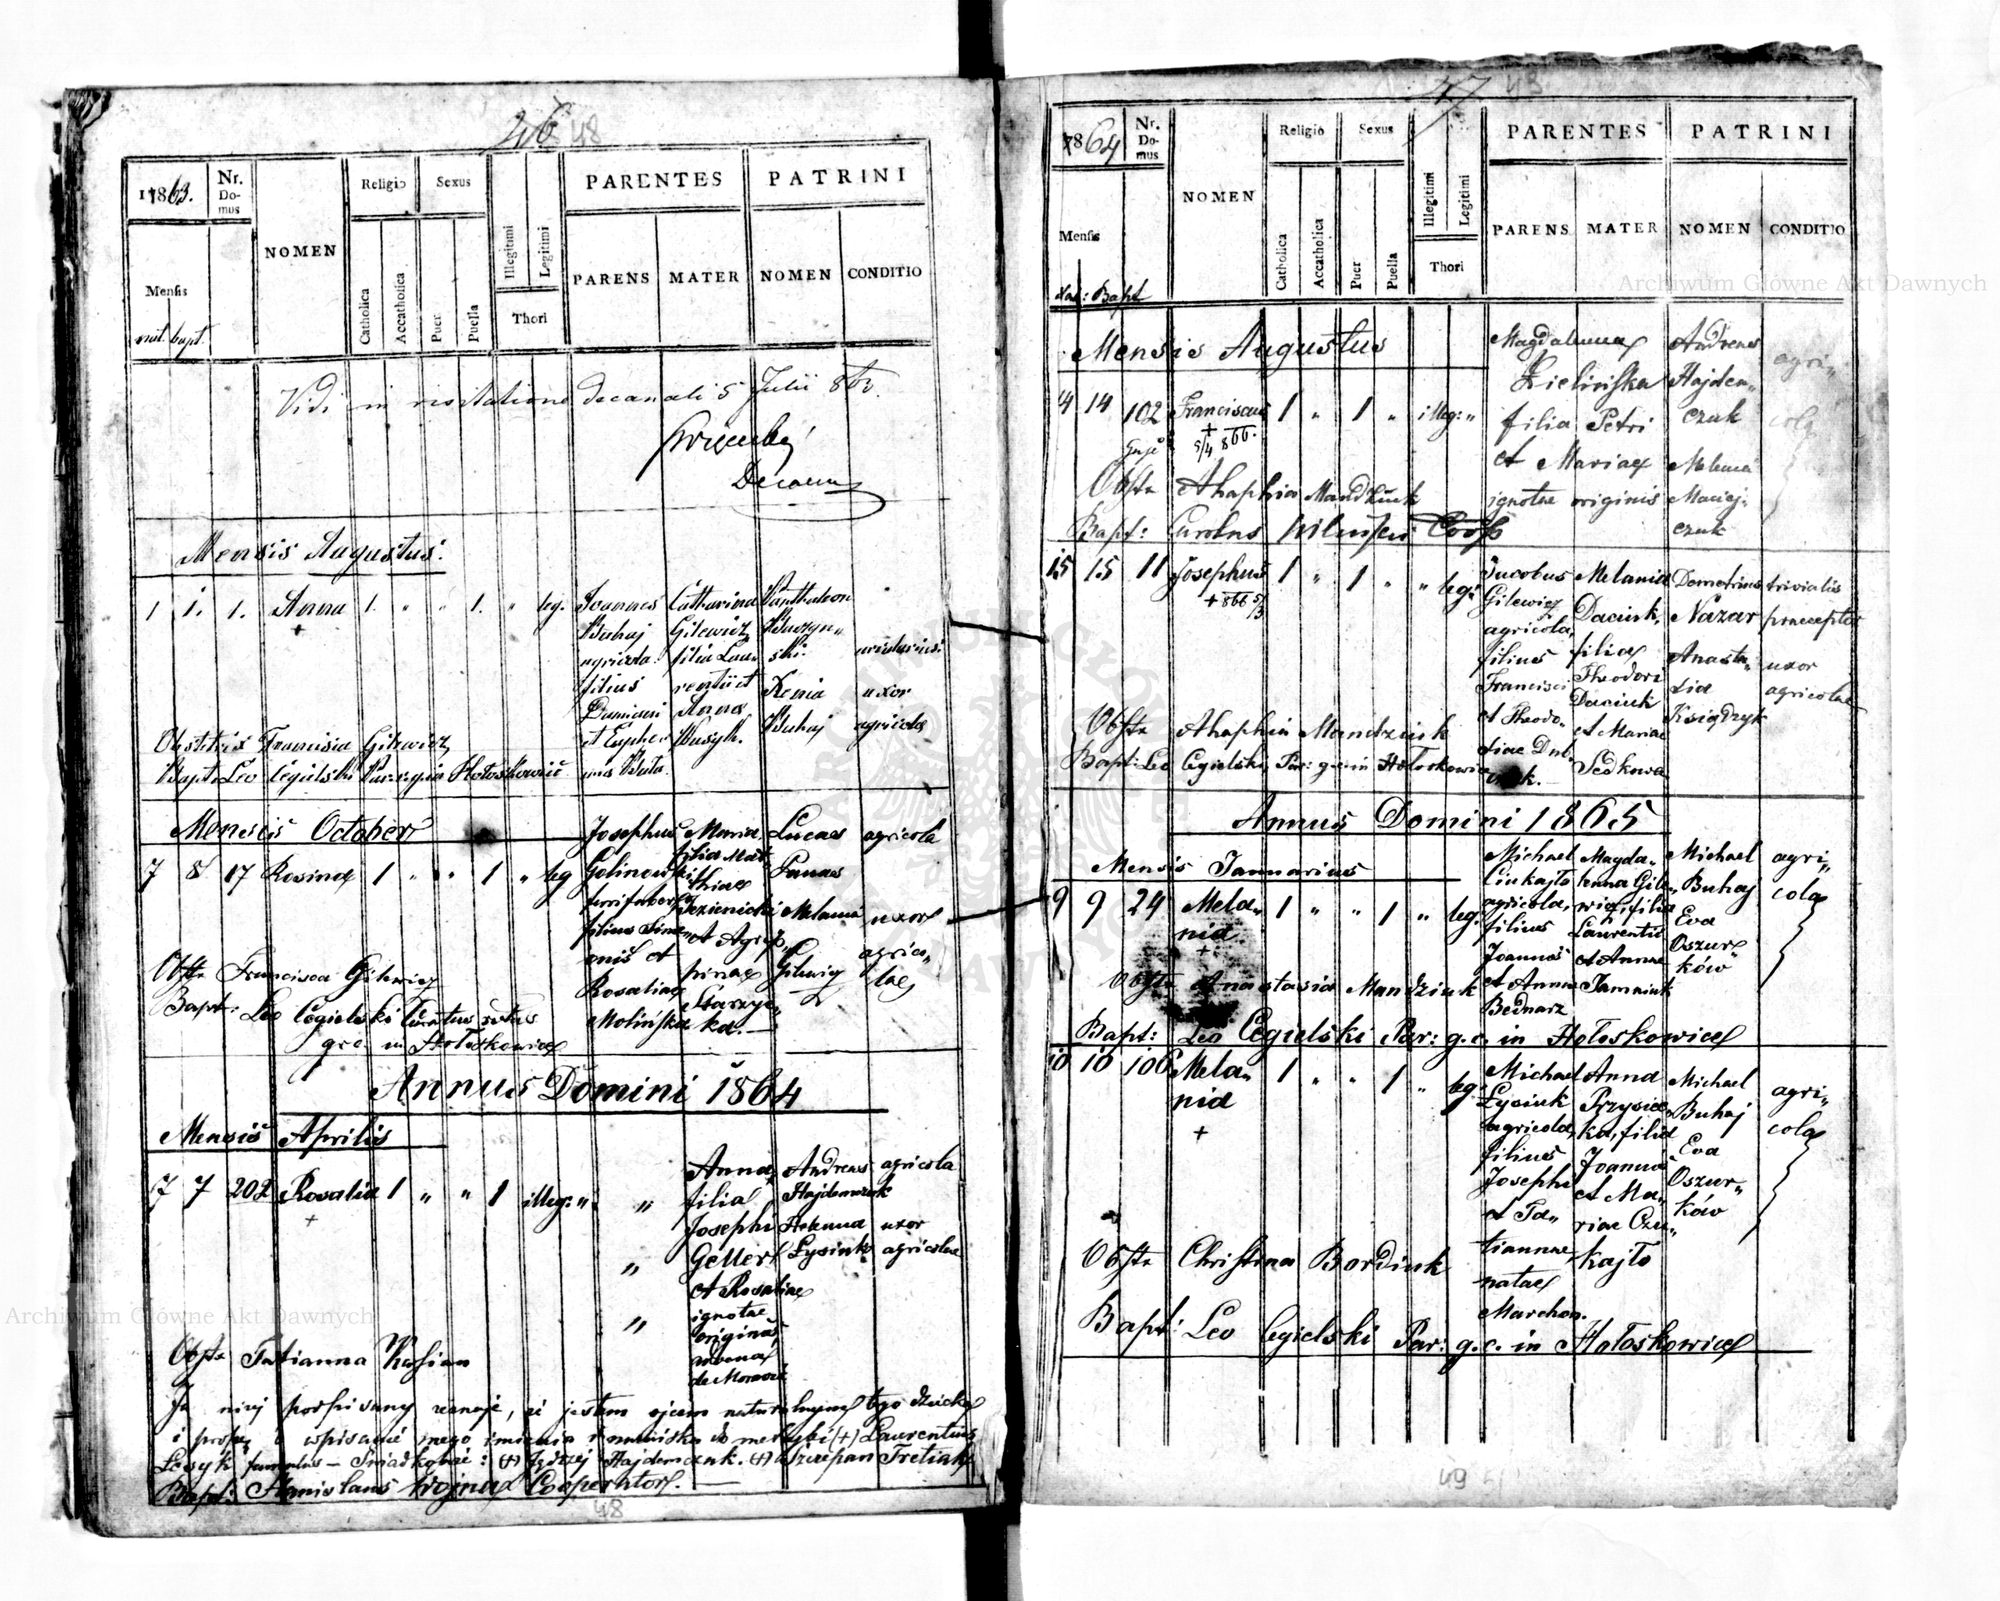 46 48
1863.
Nr. Domus
NOMEN
Religio
Sexus
PARENTES
PATRINI
Mensis
nat. bapt.
Catholica
Accatholica
Puer
Puella
Illegitimi
Legitimi
Thori
PARENS
MATER
NOMEN
CONDITIO
Vidi in visitatione decanali 5 Julii 863.
Decanus
Mensis Augustus.
1 1. 1. Anna 1. " " 1. " leg.
+
Joannes
Buhaj
agricola.
filius
Damiani
et Euphe
Catharina
Gilewicz
filia Lau
rentii et
Anna
Wasylk.
Panthaleon
Buczyn"
ski.
Xenia
Buhaj
uxor
agricola
Obstetrix Francisca Gilewicz
Bapt. Leo Cegielski
Mensis October
7 8 17 Rosina 1 " " 1 " leg
Josephus
Golinowski
filius Simе"
onis et
Rosaliae
Molińska
Maria
filia Mat"
thiae
Jezienicki
et Agrip"
pinae
ka.
Lucas
Panas
Melania
Gilewicz
agricola
uxor
agrico"
lae
Obstx Francisca Gilewicz
Bapt: Leo Cegielski Curatus ritus
gr.c. in Hołoskowice
Annus Domini 1864
Mensis Aprilis
7 7 202 Rosalia 1 " " 1 illeg: "
+
Anna
filia
Josephi
Gellert
et Rosaliae
ignotae
originis
Andreas
Hajdamczuk
Helena
Łysiuk
agricola
uxor
agricolae
Obstx Tatianna Kasian
Ja niżej podpisany zeznaję, że jestem ojcem naturalnym tego dziecka
i proszę o wpisanie mego imienia i nazwiska do metryki (+) Laurentius
Lesyk famulus – Świadkowie: (+) Jędrzej Hajdamczuk. (+) Szczepan Tretiak
Bapt: Stanislaus Wojna Cooperator.
48
47
1864
Nr. Domus
NOMEN
Religio
Sexus
PARENTES
PATRINI
Mensis
nat: Bapt
Catholica
Accatholica
Puer
Puella
Illegitimi
Legitimi
Thori
PARENS
MATER
NOMEN
CONDITIO
Mensis Augustus
4 14 102 Franciscus 1 " 1 " illeg: "
+
5/4 866.
Magdalena
Zielińska
filia Petri
et Mariae
ignotae originis
Andreas
Hajdam"
czuk
Helena
Maciej"
czuk
agri"
cola
Obstx Ahaphia Mandziuk
Bapt: Carolus Coop
15 15 11 Josephus 1 " 1 " " leg:
+ 866 5/3
Jacobus
Gilewicz
agricola,
filius
Francisci
et Theodo"
siae
Melania
Daciuk,
filia
Theodori
Daciuk
et Mariae
Sedkowa
Demetrius
Nazar
Anasta"
sia
Książdzyk
trivialis
praeceptor
uxor
agricolae
Obstx Ahaphia Mandziuk
Bapt: Leo Cegielski, Par: g.c. in Hołoskowice
Annus Domini 1865
Mensis Januarius
9 9 24 Mela"
nia 1 " " 1 " leg:
+
Michael
Ciukajło
agricola,
filius
Joannis
et Annae
Bednarz
Magda"
lena Gile"
wicz, filia
Laurentii
et Annae
Tamniuk
Michael
Buhaj
Eva
Oszur"
ków
agri"
cola
Obstx Anastasia Mandziuk
Bapt: Leo Cegielski Par: g.c. in Hołoskowice
10 10 106 Mela"
nia 1 " " 1 " leg:
+
Michael
Łysiuk
agricola,
filius
Josephi
et Ta"
tiannae
natae
Marchon.
Anna
Przysięż"
ka, filia
Joannis
et Ma"
riae Czu"
kajło
Michael
Buhaj
Eva
Oszur"
ków
agri"
cola
Obstx Christina Bordiuk
Bapt: Leo Cegielski Par: g.c. in Hołoskowice
49
Archiwum Główne Akt Dawnych
Archiwum Główne Akt Dawnych